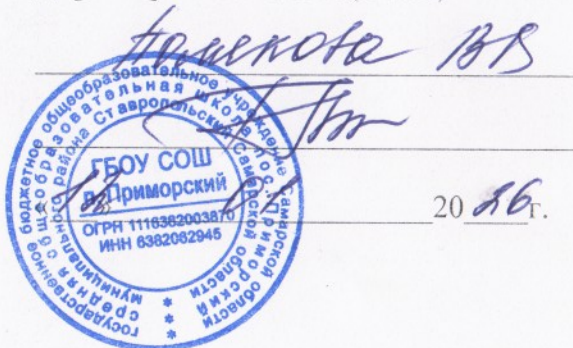 ВВ
государственное бюджетное общеобразовательное учреждение Самарской области
средняя общеобразовательная школа пос. Приморский
муниципального района Ставропольский Самарской области
ГБОУ СОШ
п. Приморский
ОГРН 1116382003870
ИНН 6382062945
« 12 » 01 20 26 г.